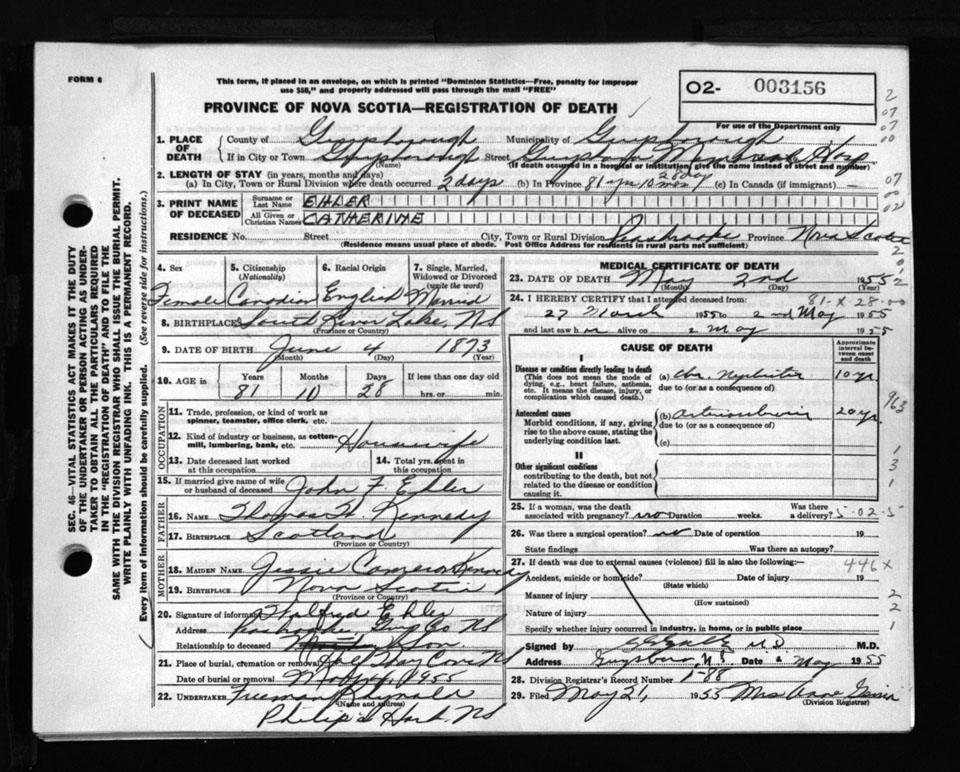 FORM 6
This form, if placed in an envelope, on which is printed "Dominion Statistics—Free, penalty for improper
use $50," and properly addressed will pass through the mail "FREE"
PROVINCE OF NOVA SCOTIA—REGISTRATION OF DEATH
O2- 003156
For use of the Department only
1. PLACE OF DEATH County of Guysborough Municipality of Guysborough
If in City or Town Guysborough Street Guysboro Memorial Hosp
(Name) (If death occurred in a hospital or institution, give its name instead of street and number)
2. LENGTH OF STAY (in years, months and days)
(a) In City, Town or Rural Division where death occurred 2 days (b) In Province 81 yrs 10 mos 28 day (c) In Canada (if immigrant) —
3. PRINT NAME OF DECEASED Surname or Last Name EHLER
All Given or Christian Names CATHERINE
RESIDENCE No. Street City, Town or Rural Division Province Nova Scotia
(Residence means usual place of abode. Post Office Address for residents in rural parts not sufficient)
4. Sex 5. Citizenship (Nationality) 6. Racial Origin 7. Single, Married, Widowed or Divorced (write the word)
Female Canadian English Married
8. BIRTHPLACE South River Lake, NS
(Province or Country)
9. DATE OF BIRTH June 4 1873
(Month) (Day) (Year)
10. AGE in Years Months Days If less than one day old
81 10 28 hrs. or min.
OCCUPATION
11. Trade, profession, or kind of work as spinner, teamster, office clerk, etc.
12. Kind of industry or business, as cotton-mill, lumbering, bank, etc. Housewife
13. Date deceased last worked at this occupation 14. Total yrs. spent in this occupation
15. If married give name of wife or husband of deceased John F. Ehler
FATHER
16. NAME Thomas Kennedy
17. BIRTHPLACE Scotland
(Province or Country)
MOTHER
18. MAIDEN NAME Jessie Cameron Kennedy
19. BIRTHPLACE Nova Scotia
(Province or Country)
20. Signature of informant Wilfred Ehler
Address Guy Co NS
Relationship to deceased Son
21. Place of burial, cremation or removal NS
Date of burial or removal 1955
22. UNDERTAKER Freeman
(Name and address)
NS
MEDICAL CERTIFICATE OF DEATH
23. DATE OF DEATH May 2nd 1955
(Month) (Day)
81-X 28-00
24. I HEREBY CERTIFY that I attended deceased from:
27 March 1955 to 2nd May 1955
and last saw her alive on 2 May 1955
CAUSE OF DEATH
Approximate interval between onset and death
I
Disease or condition directly leading to death
(This does not mean the mode of dying, e.g., heart failure, asthenia, etc. It means the disease, injury, or complication which caused death.)
(a) Chr. Nephritis 10 yr
due to (or as a consequence of)
Antecedent causes
Morbid conditions, if any, giving rise to the above cause, stating the underlying condition last.
(b) 20 yr
due to (or as a consequence of)
(c)
II
Other significant conditions
contributing to the death, but not related to the disease or condition causing it.
25. If a woman, was the death associated with pregnancy? no Duration weeks. Was there a delivery?
5-02-5
26. Was there a surgical operation? no Date of operation 19
State findings Was there an autopsy?
27. If death was due to external causes (violence) fill in also the following:— 446x
Accident, suicide or homicide? Date of injury 19
(State which)
Manner of injury
(How sustained)
Nature of injury
Specify whether injury occurred in industry, in home, or in public place
Signed by M.D.
Address Guysboro, N.S. Date 2 May 1955
28. Division Registrar's Record Number 1-88
29. Filed May 21, 1955 Mrs
(Division Registrar)
SEC. 46—VITAL STATISTICS ACT MAKES IT THE DUTY
OF THE UNDERTAKER OR PERSON ACTING AS UNDER-
TAKER TO OBTAIN ALL THE PARTICULARS REQUIRED
IN THE "REGISTRATION OF DEATH" AND TO FILE THE
SAME WITH THE DIVISION REGISTRAR WHO SHALL ISSUE THE BURIAL PERMIT.
WRITE PLAINLY WITH UNFADING INK. THIS IS A PERMANENT RECORD.
Every item of information should be carefully supplied. (See reverse side for instructions.)
963